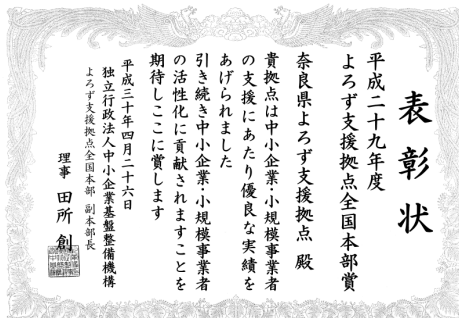 表彰状
平成二十九年度
よろず支援拠点全国本部賞
奈良県よろず支援拠点 殿
貴拠点は中小企業・小規模事業者
の支援にあたり優良な実績を
あげられました
引き続き中小企業・小規模事業者
の活性化に貢献されますことを
期待しここに賞します
平成三十年四月二十六日
独立行政法人中小企業基盤整備機構
よろず支援拠点全国本部 副本部長
理事 田所 創